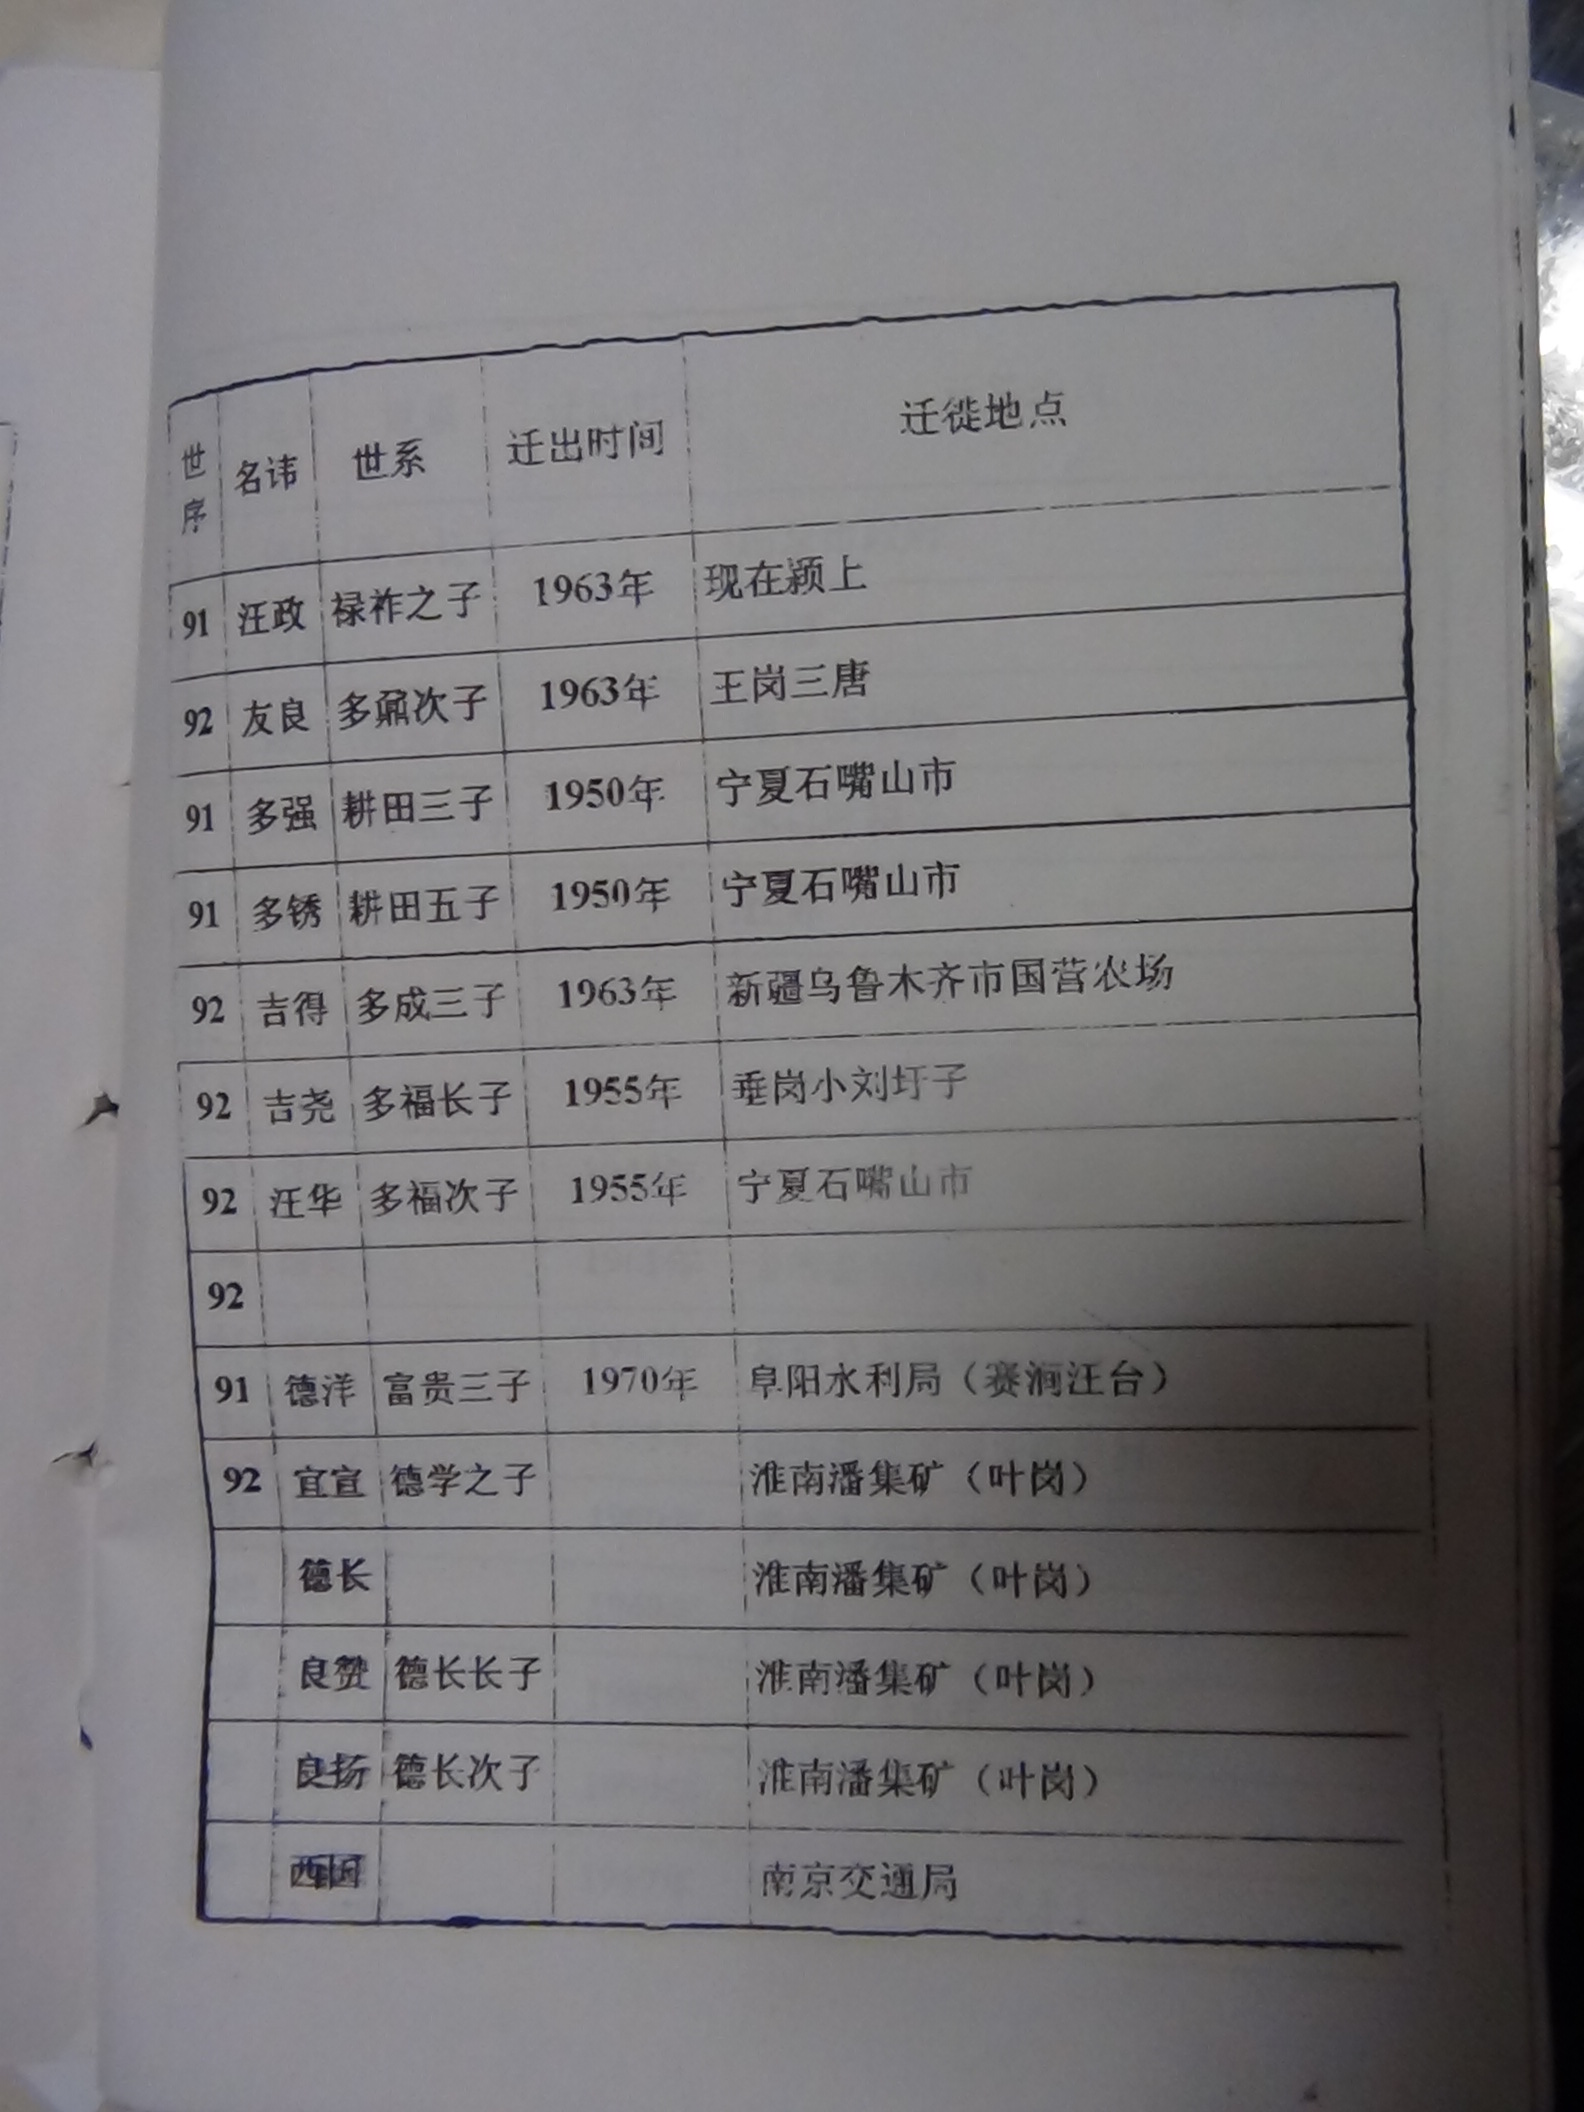 世序 名讳 世系 迁出时间 迁徙地点
91 汪政 禄祚之子 1963年 现在颍上
92 友良 多鼐次子 1963年 王岗三唐
91 多强 耕田三子 1950年 宁夏石嘴山市
91 多锈 耕田五子 1950年 宁夏石嘴山市
92 吉得 多成三子 1963年 新疆乌鲁木齐市国营农场
92 吉尧 多福长子 1955年 垂岗小刘圩子
92 汪华 多福次子 1955年 宁夏石嘴山市
92
91 德洋 富贵三子 1970年 阜阳水利局（赛涧汪台）
92 宜宣 德学之子 淮南潘集矿（叶岗）
德长 淮南潘集矿（叶岗）
良赞 德长长子 淮南潘集矿（叶岗）
良扬 德长次子 淮南潘集矿（叶岗）
南京交通局